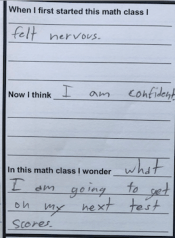 When I first started this math class I
felt nervous.
Now I think I am confident
In this math class I wonder what
I am going to get
on my next test
scores.